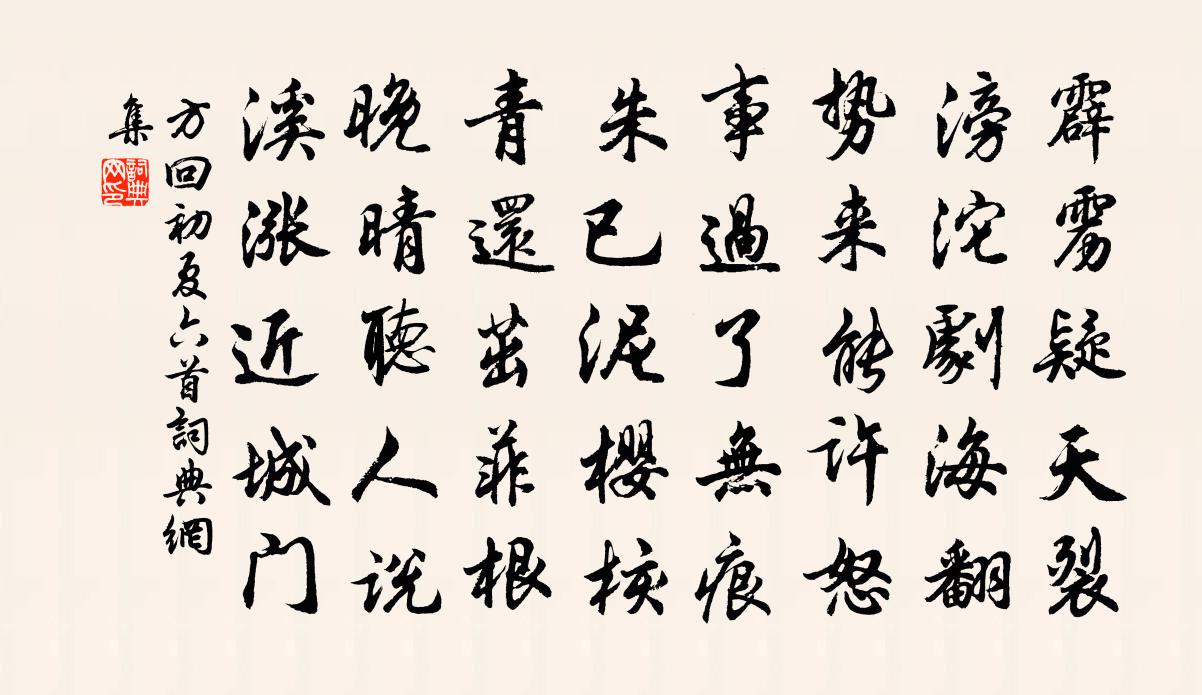 霹雳疑天裂
滂沱劇海翻
势来能许怒
事過了無痕
朱已泥櫻核
青還茁菲根
晚晴聽人说
溪漲近城门
方回初夏六首詞典網
集
詞典
网印